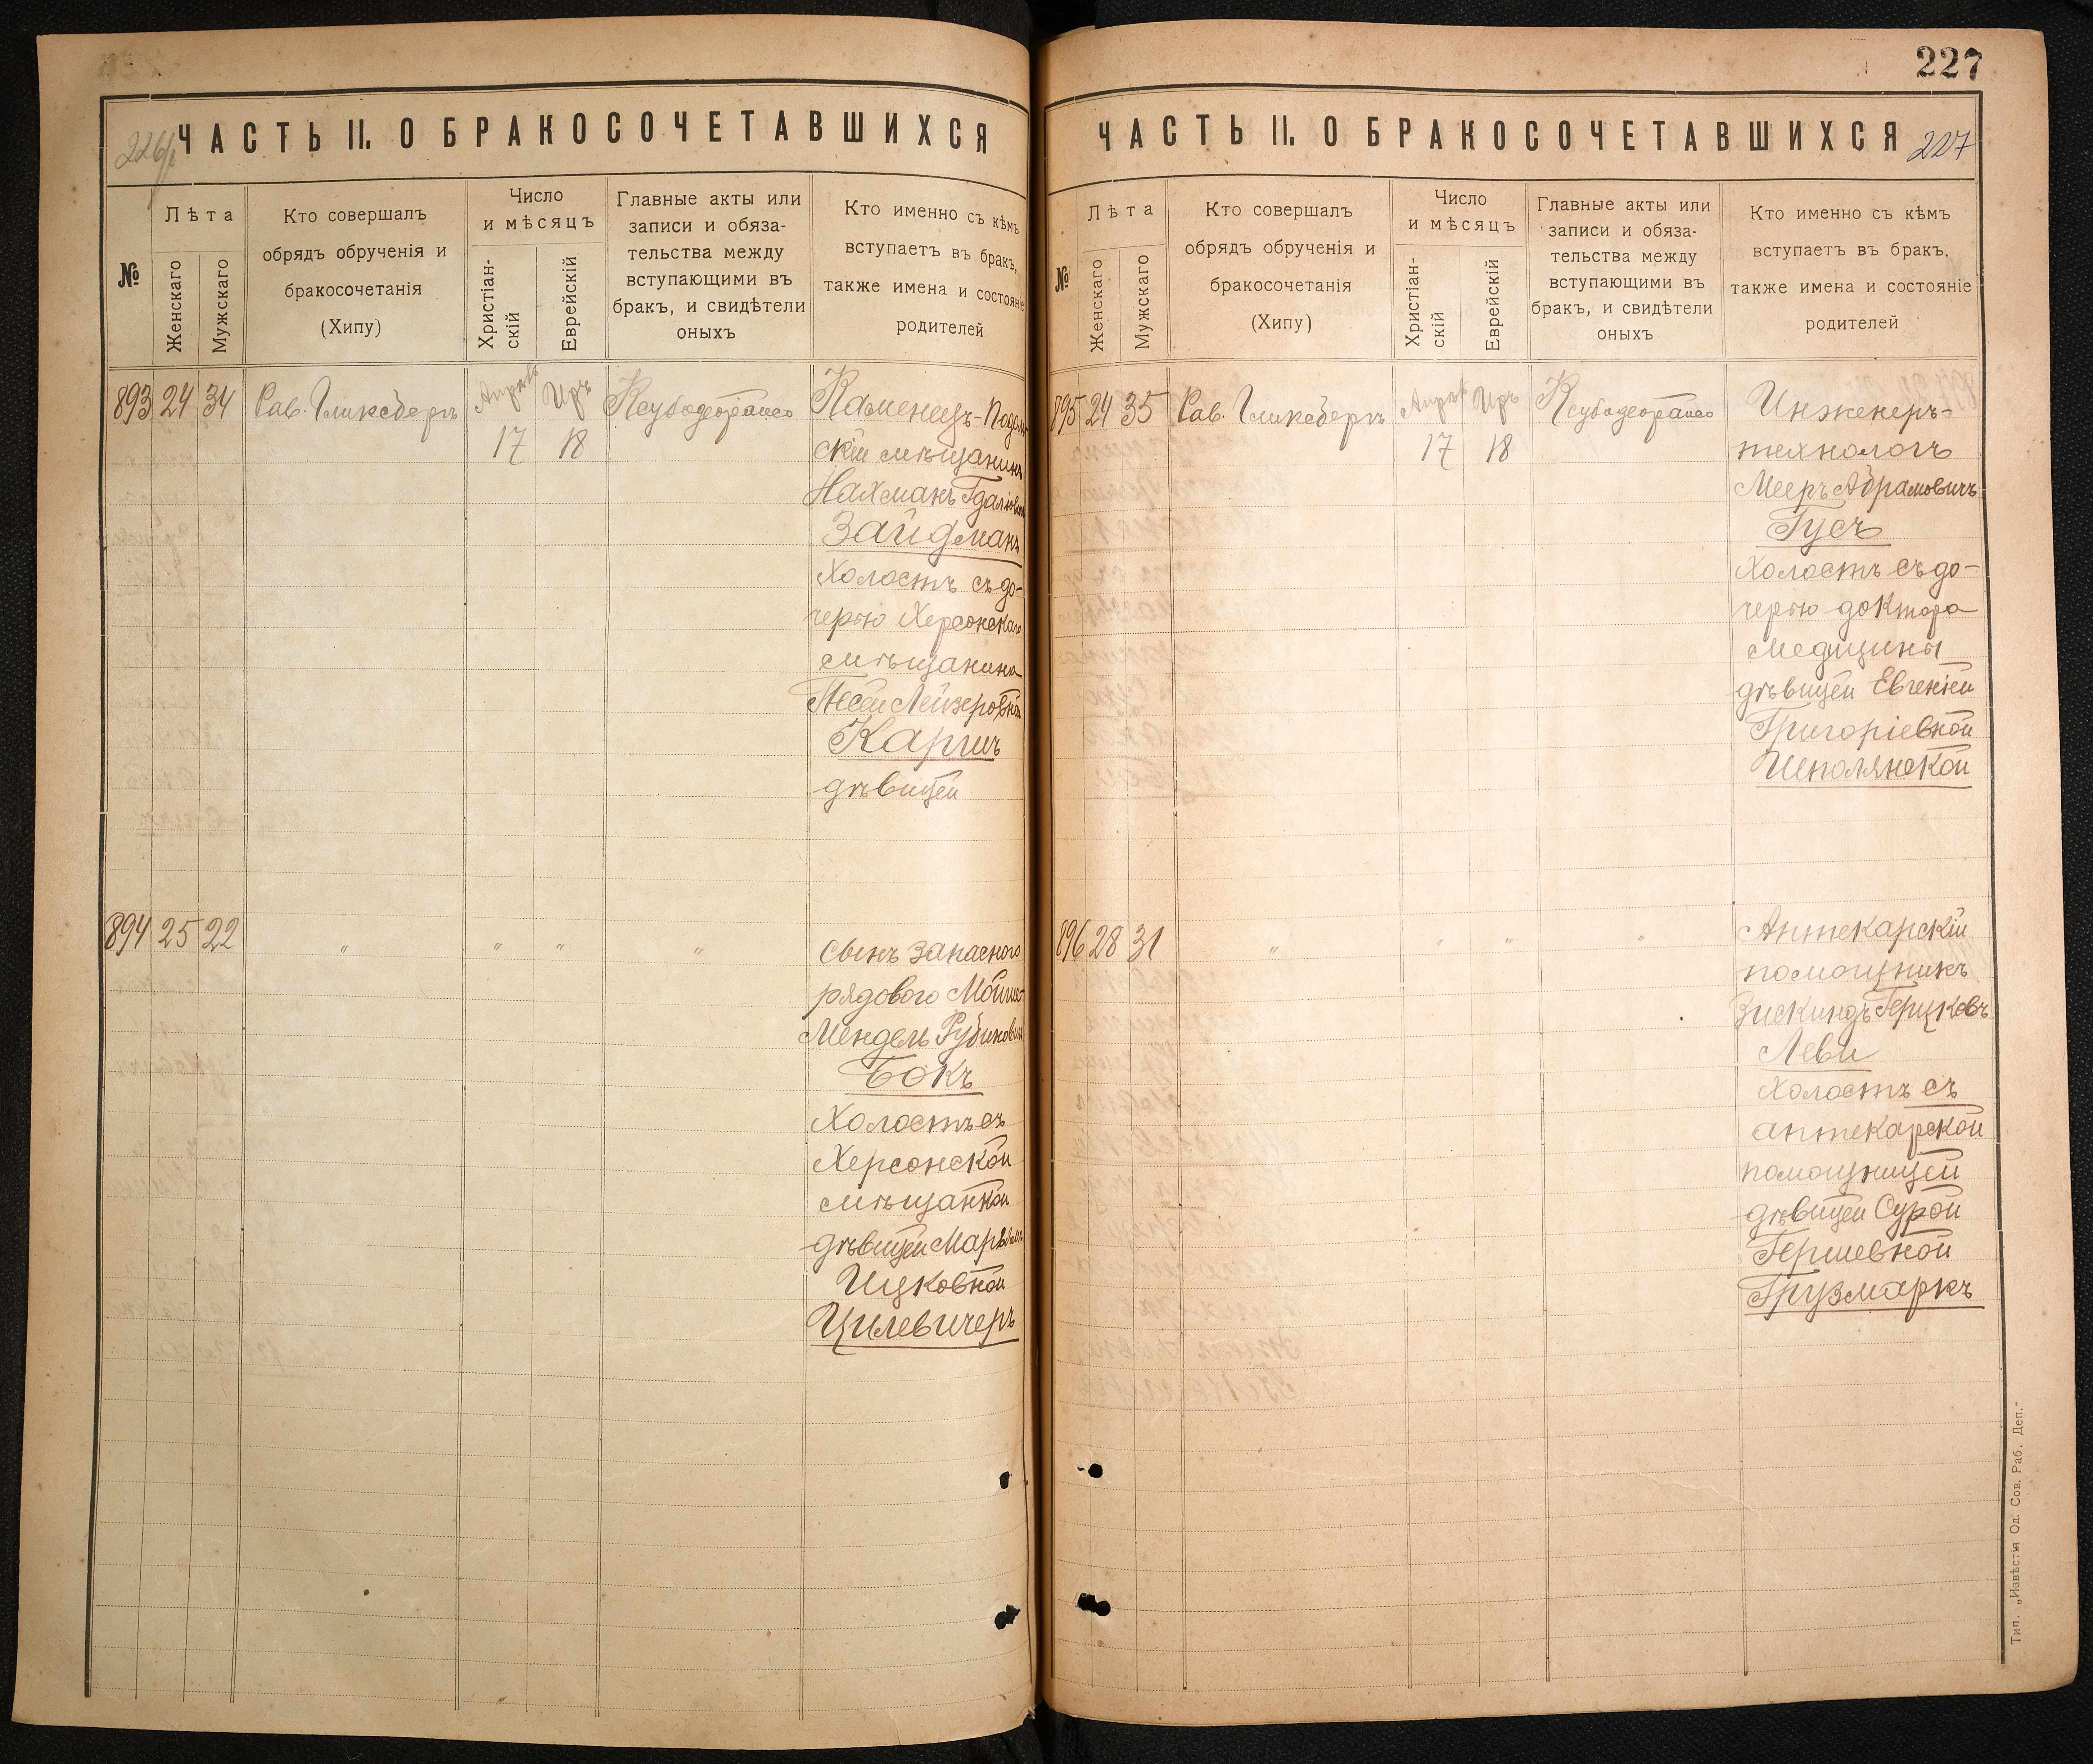 226/б
ЧАСТЬ II. О БРАКОСОЧЕТАВШИХСЯ
№
Лѣта
Женскаго
Мужскаго
Кто совершалъ
обрядъ обрученія и
бракосочетанія
(Хипу)
Число
и мѣсяцъ
Христіан-
скій
Еврейскій
Главные акты или
записи и обяза-
тельства между
вступающими въ
бракъ, и свидѣтели
оныхъ
Кто именно съ кѣмъ
вступаетъ въ бракъ,
также имена и состояніе
родителей
893 24 34 Рав. Гликсбергъ Апрѣль 17 Иръ 18
Каменецъ-Подоль
скій мѣщанинъ
Нахманъ
Зайдманъ
Холостъ съ до-
черью Херсонскаго
мѣщанина
Песей Лейзеровной
Каргиъ
дѣвицей
894 25 22 " " " "
сынъ запаснаго
рядового Мойше-
Мендель Рубиновичъ
Бокъ
Холостъ съ
Херсонской
мѣщанкой
дѣвицей Марьямъ
Ицковной
Цилевичеръ
227
ЧАСТЬ II. О БРАКОСОЧЕТАВШИХСЯ
227
№
Лѣта
Женскаго
Мужскаго
Кто совершалъ
обрядъ обрученія и
бракосочетанія
(Хипу)
Число
и мѣсяцъ
Христіан-
скій
Еврейскій
Главные акты или
записи и обяза-
тельства между
вступающими въ
бракъ, и свидѣтели
оныхъ
Кто именно съ кѣмъ
вступаетъ въ бракъ,
также имена и состояніе
родителей
895 24 35 Рав. Гликсбергъ Апрѣль 17 Иръ 18
Инженеръ-
технологъ
Мееръ Абрамовичъ
Гусъ
Холостъ съ до-
черью доктора
Медицины
дѣвицей Евгеніей
Григоріевной
Шполянской
896 28 31 " " " "
Аптекарскій
помощникъ
Зискиндъ Герцковъ
Леви
Холостъ съ
аптекарской
помощницей
дѣвицей Сурой
Гершевной
Грузмаркъ
Тип. „Извѣстія Од. Сов. Раб. Деп."